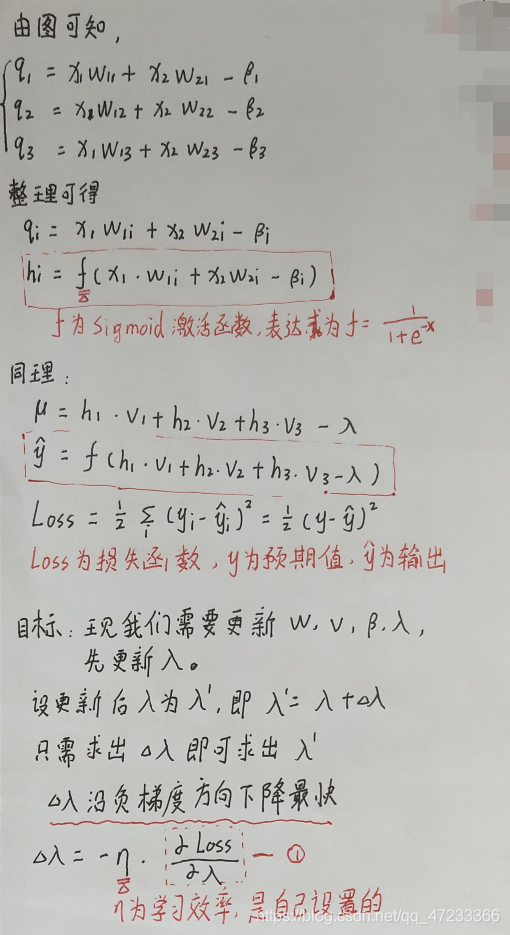 由图可知,
q₁ = x₁w₁₁ + x₂w₂₁ - β₁
q₂ = x₁w₁₂ + x₂w₂₂ - β₂
q₃ = x₁w₁₃ + x₂w₂₃ - β₃
整理可得
qᵢ = x₁w₁ᵢ + x₂w₂ᵢ - βᵢ
hᵢ = f(x₁·w₁ᵢ + x₂w₂ᵢ - βᵢ)
f为sigmoid激活函数,表达式为f = 1/(1+e^-x)
同理:
μ = h₁·v₁ + h₂·v₂ + h₃·v₃ - λ
ŷ = f(h₁·v₁ + h₂·v₂ + h₃·v₃ - λ)
Loss = ½ Σᵢ (yᵢ - ŷᵢ)² = ½ (y - ŷ)²
Loss为损失函数,y为预期值,ŷ为输出
目标:现我们需要更新 w, v, β, λ,
先更新λ。
设更新后λ为λ',即 λ' = λ + Δλ
只需求出Δλ即可求出λ'
Δλ沿负梯度方向下降最快
Δλ = -η · ∂Loss/∂λ — ①
η为学习效率,是自己设置的
https://blog.csdn.net/qq_47233366